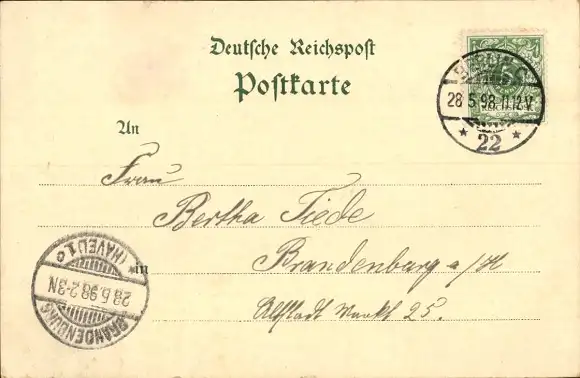 Deutsche Reichspost
Postkarte
BERLIN C
28 5.98.11-12V.
* 22 *
An
Frau
Bertha Tiede
in
Brandenburg a/H
Altstadt Markt 25.
BRANDENBURG
28.5.98.2-3N
(HAVEL) 1.